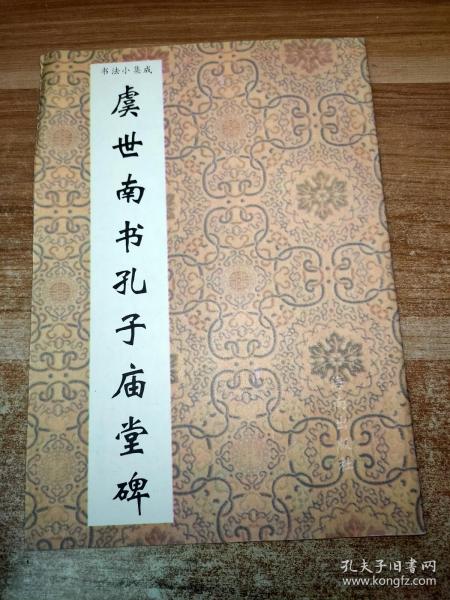 书法小集成
虞世南书孔子庙堂碑
出版社
孔夫子旧书网
www.kongfz.com